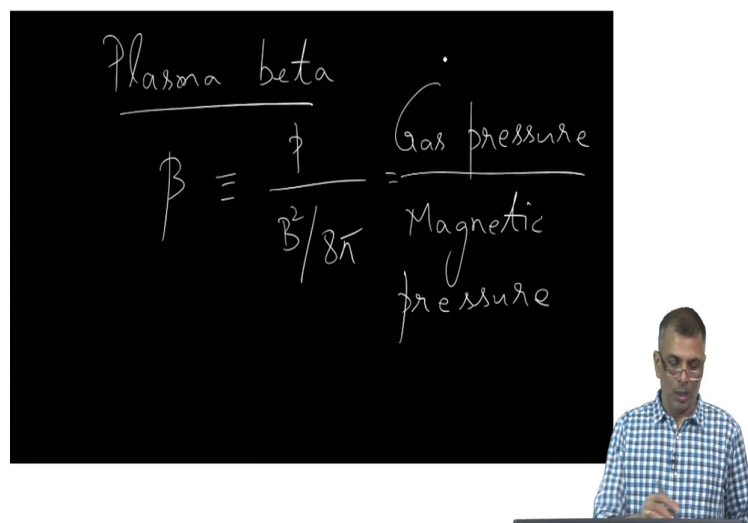 Plasma beta
β ≡ p / B²/8π = Gas pressure / Magnetic pressure